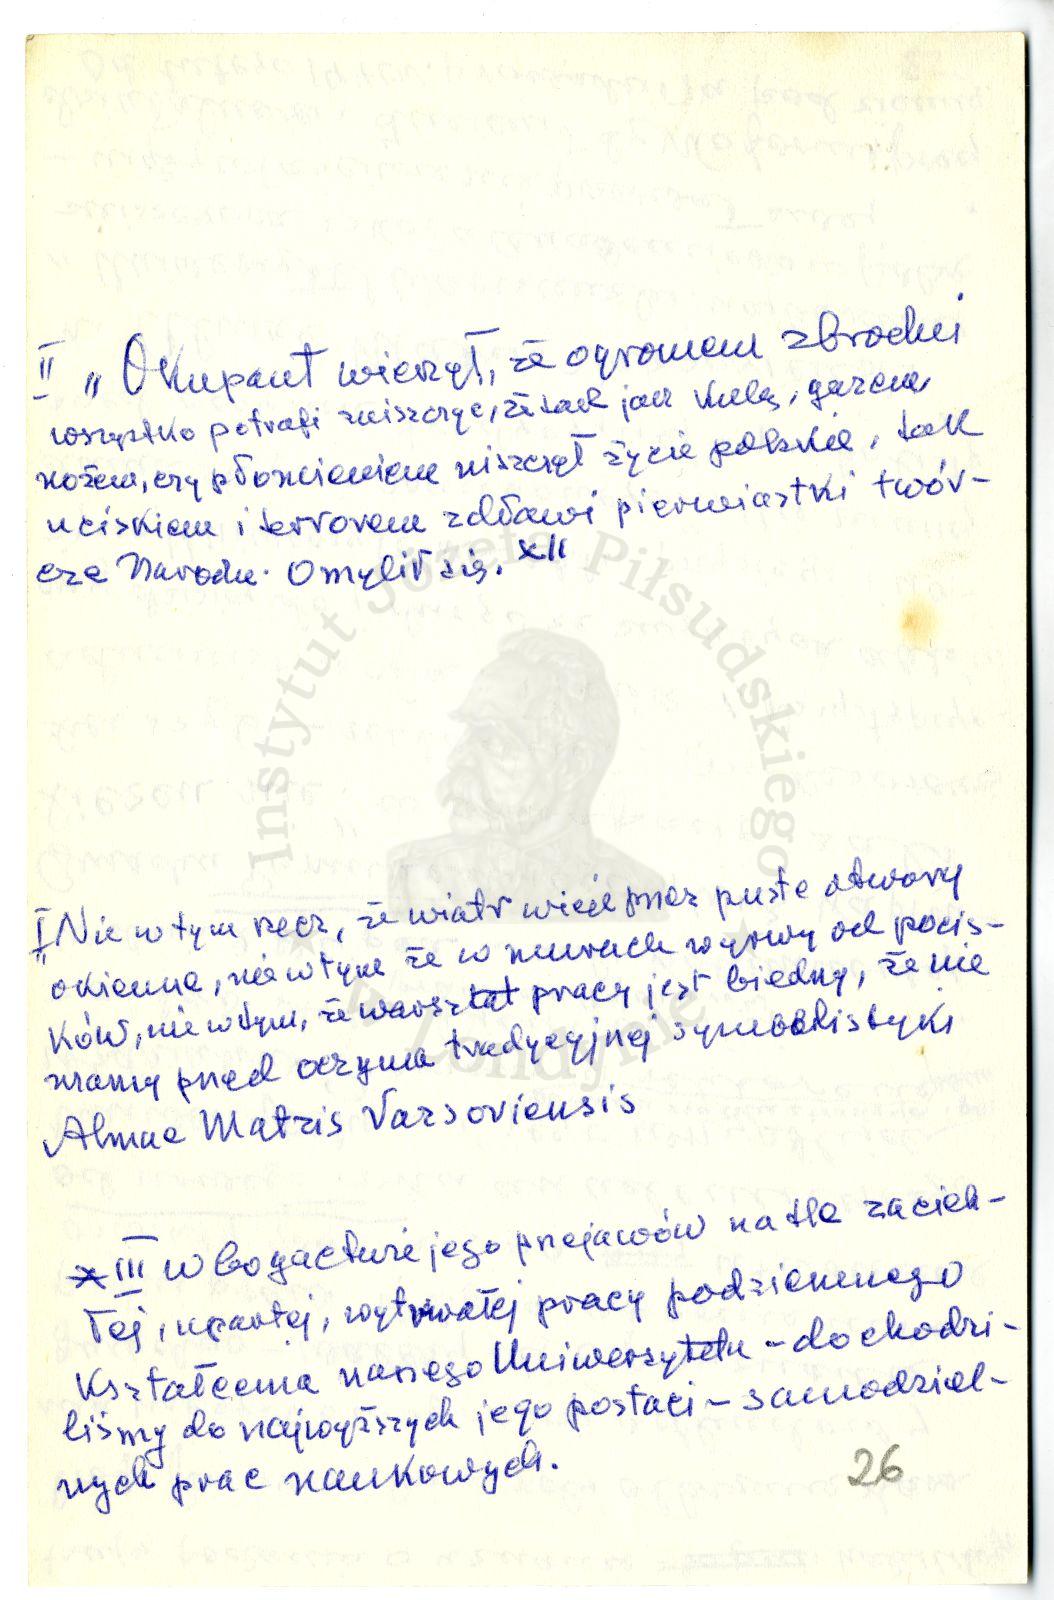 II „Okupant wierzył, że ogromem zbrodni
wszystko potrafi zniszczyć, że tak jak kulą, gazem,
nożem, czy płomieniem niszczył życie polskie, tak
uciskiem i terrorem zdławi pierwiastki twór-
cze Narodu. Omylił się.
Instytut Józefa Piłsudskiego
w Londynie
I Nie w tym rzecz, że wiatr wieje przez puste otwory
okienne, nie w tym że w murach wyrwy od pocis-
ków, nie w tym, że warsztat pracy jest biedny, że nie
mamy przed oczyma tradycyjnej symbolistyki
Almae Matris Varsoviensis
x III W bogactwie jego przejawów na tle zaciek-
łej, upartej, wytrwałej pracy podziemnego
kształcenia naszego Uniwersytetu – dochodzi-
liśmy do najwyższych jego postaci – samodziel-
nych prac naukowych.
26